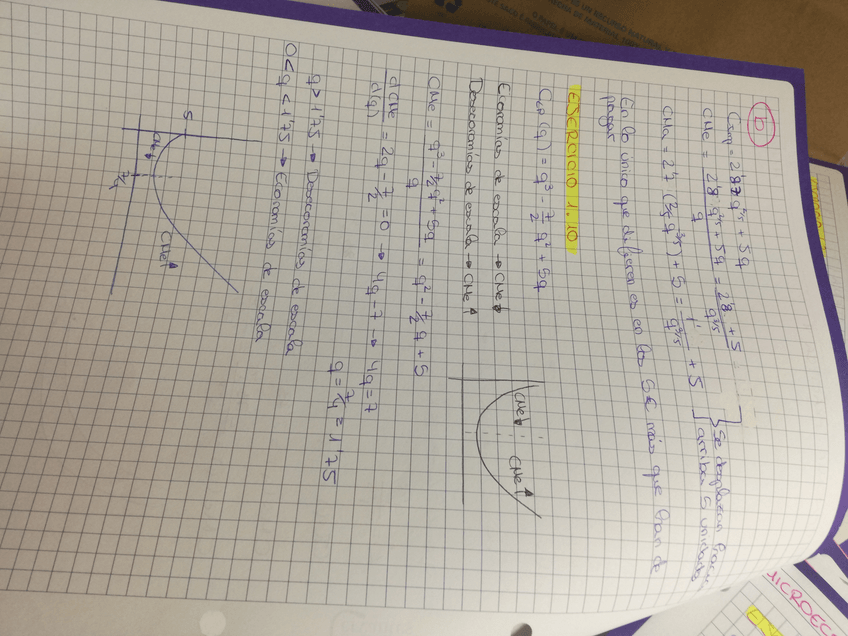 b)
C = 2'8 q^2/5 + 5q
CMe = 2'8 q^2/5 + 5q / q = 2'8 / q^3/5 + 5
Se desplazan hacia
arriba 5 unidades
+ 5 =
+ 5
En lo único que difieren es en los 5€ más que han de
pagar
EJERCICIO 1.10
(q) = q³ - 7/2 q² + 5q
Economías de escala → CMe↓
Deseconomías de escala → CMe↑
CMe↓ CMe↑
CMe = q³ - 7/2 q² + 5q / q = q² - 7/2 q + 5
dCMe / d(q) = 2q - 7/2 = 0 → 4q - 7 → 4q = 7
q = 7/4 = 1'75
q > 1'75 → Deseconomías de escala
0 < q < 1'75 → Economías de escala
5
CMe↓
CMe↑
7/4
MICROECO